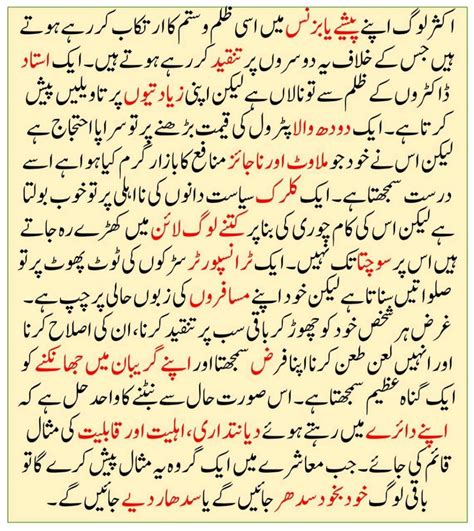 اکثر لوگ اپنے پیشے یا بزنس میں اسی ظلم و ستم کا ارتکاب کر رہے ہوتے
ہیں جس کے خلاف یہ دوسروں پر تنقید کر رہے ہوتے ہیں۔ ایک استاد
ڈاکٹروں کے ظلم سے تو نالاں ہے لیکن اپنی زیادتیوں پر تاویلیں پیش
کرتا ہے۔ ایک دودھ والا پٹرول کی قیمت بڑھنے پر تو سراپا احتجاج ہے
لیکن اس نے خود جو ملاوٹ اور ناجائز منافع کا بازار گرم کیا ہوا ہے اسے
درست سمجھتا ہے۔ ایک کلرک سیاست دانوں کی نااہلی پر تو خوب بولتا
ہے لیکن اس کی کام چوری کی بنا پر کتنے لوگ لائن میں کھڑے رہ جاتے
ہیں اس پر سوچتا تک نہیں۔ ایک ٹرانسپورٹر سڑکوں کی ٹوٹ پھوٹ پر تو
صلواتیں سناتا ہے لیکن خود اپنے مسافروں کی زبوں حالی پر چپ ہے۔
غرض ہر شخص خود کو چھوڑ کر باقی سب پر تنقید کرنا، ان کی اصلاح کرنا
اور انہیں لعن طعن کرنا اپنا فرض سمجھتا اور اپنے گریبان میں جھانکنے کو
ایک گناہ عظیم سمجھتا ہے۔ اس صورت حال سے نبٹنے کا واحد حل ہے کہ
اپنے دائرے میں رہتے ہوئے دیانتداری، اہلیت اور قابلیت کی مثال
قائم کی جائے۔ جب معاشرے میں ایک گروہ یہ مثال پیش کرے گا تو
باقی لوگ خود بخود سدھر جائیں گے یا سدھار دیے جائیں گے۔